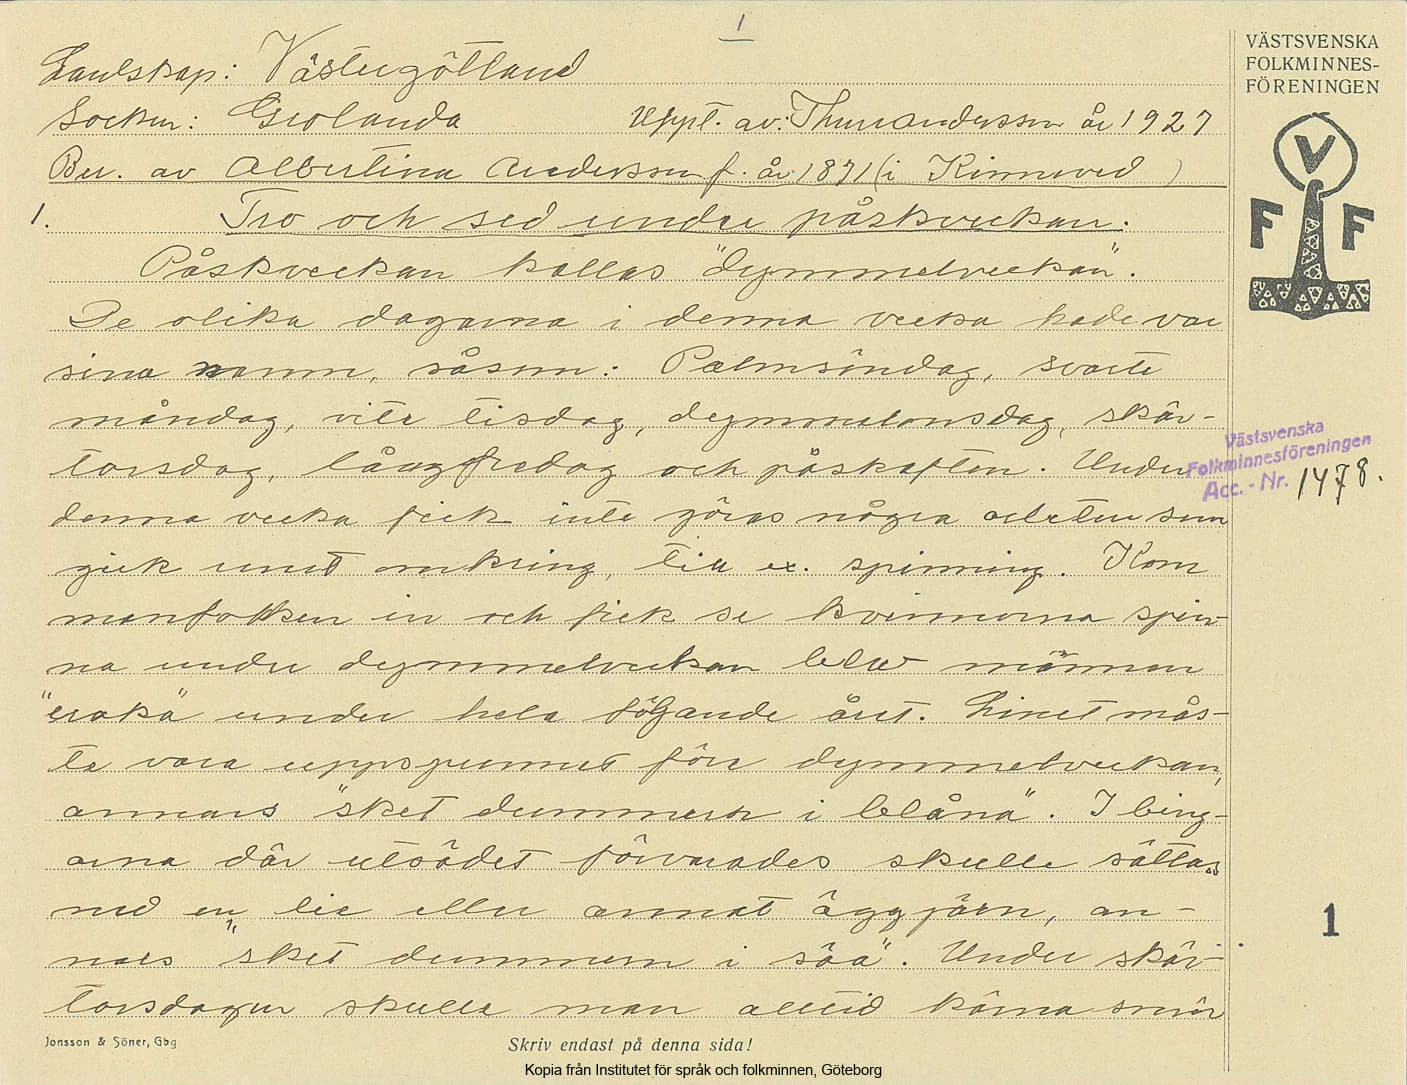 1
VÄSTSVENSKA
FOLKMINNES-
FÖRENINGEN
Landskap: Västergötland
Socken: Grolanda Uppt. av: Thure Andersson år 1927
Ber. av Albertina Andersson f. år 1871 (i Kinneved )
1. Tro och sed under påskveckan.
Påskveckan kallas "dymmelveckan".
De olika dagarna i denna vecka hade var
sina namn, såsom: Palmsöndag, svarte
måndag, vite tisdag, dymmelonsdag, skär-
torsdag, långfredag och påskafton. Under
denna vecka fick inte göras några arbeten som
gick runt omkring, till ex. spinning. Kom
manfolken in och fick se kvinnorna spin-
na under dymmelveckan blev männen
"eraka" under hela följande året. Linet mås-
te vara uppspunnet före dymmelveckan,
annars "sket dummern i blåna". I bing-
arna där utsädet förvarades skulle sättas
ned en lie eller annat äggjärn, an-
nars "sket dummern i säa". Under skär-
torsdagen skulle man alltid kärna smör
V
F F
Västsvenska
Folkminnesföreningen
Acc. - Nr. 1478.
1
Jonsson & Söner, Gbg
Skriv endast på denna sida!
Kopia från Institutet för språk och folkminnen, Göteborg